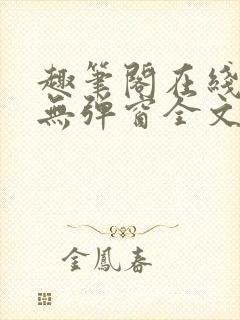 趣笔閣在綫
無彈窗全文
金鳳春